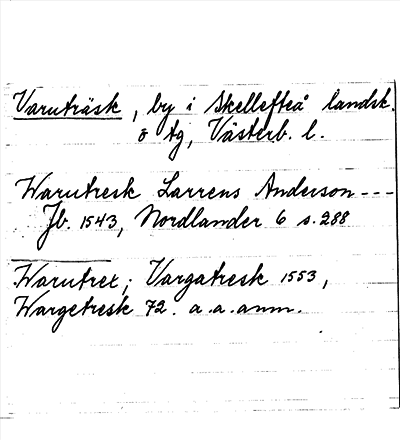 Varuträsk, by i Skellefteå landsk.
o tg, Västerb. l.
Warutresk Larrens Anderson ---
Jb. 1543, Nordlander 6 s. 288
Warutrex; Vargatresk 1553,
Wargetresk 72. a.a. anm.